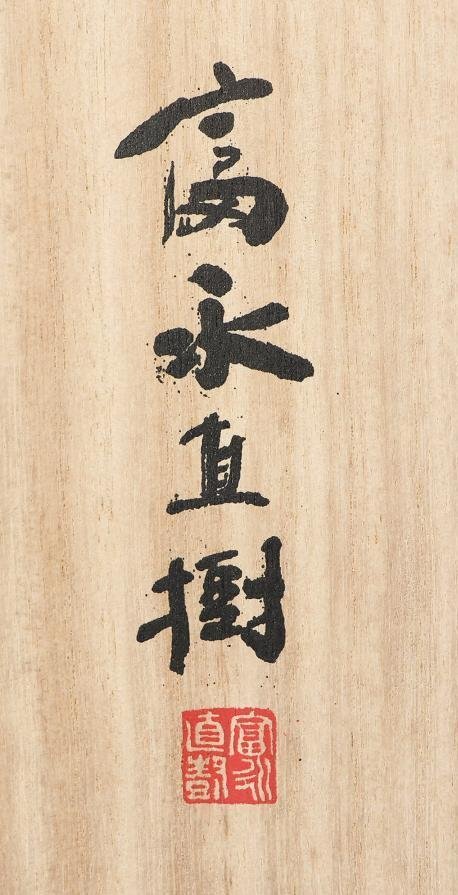 富永直樹
富永
直樹